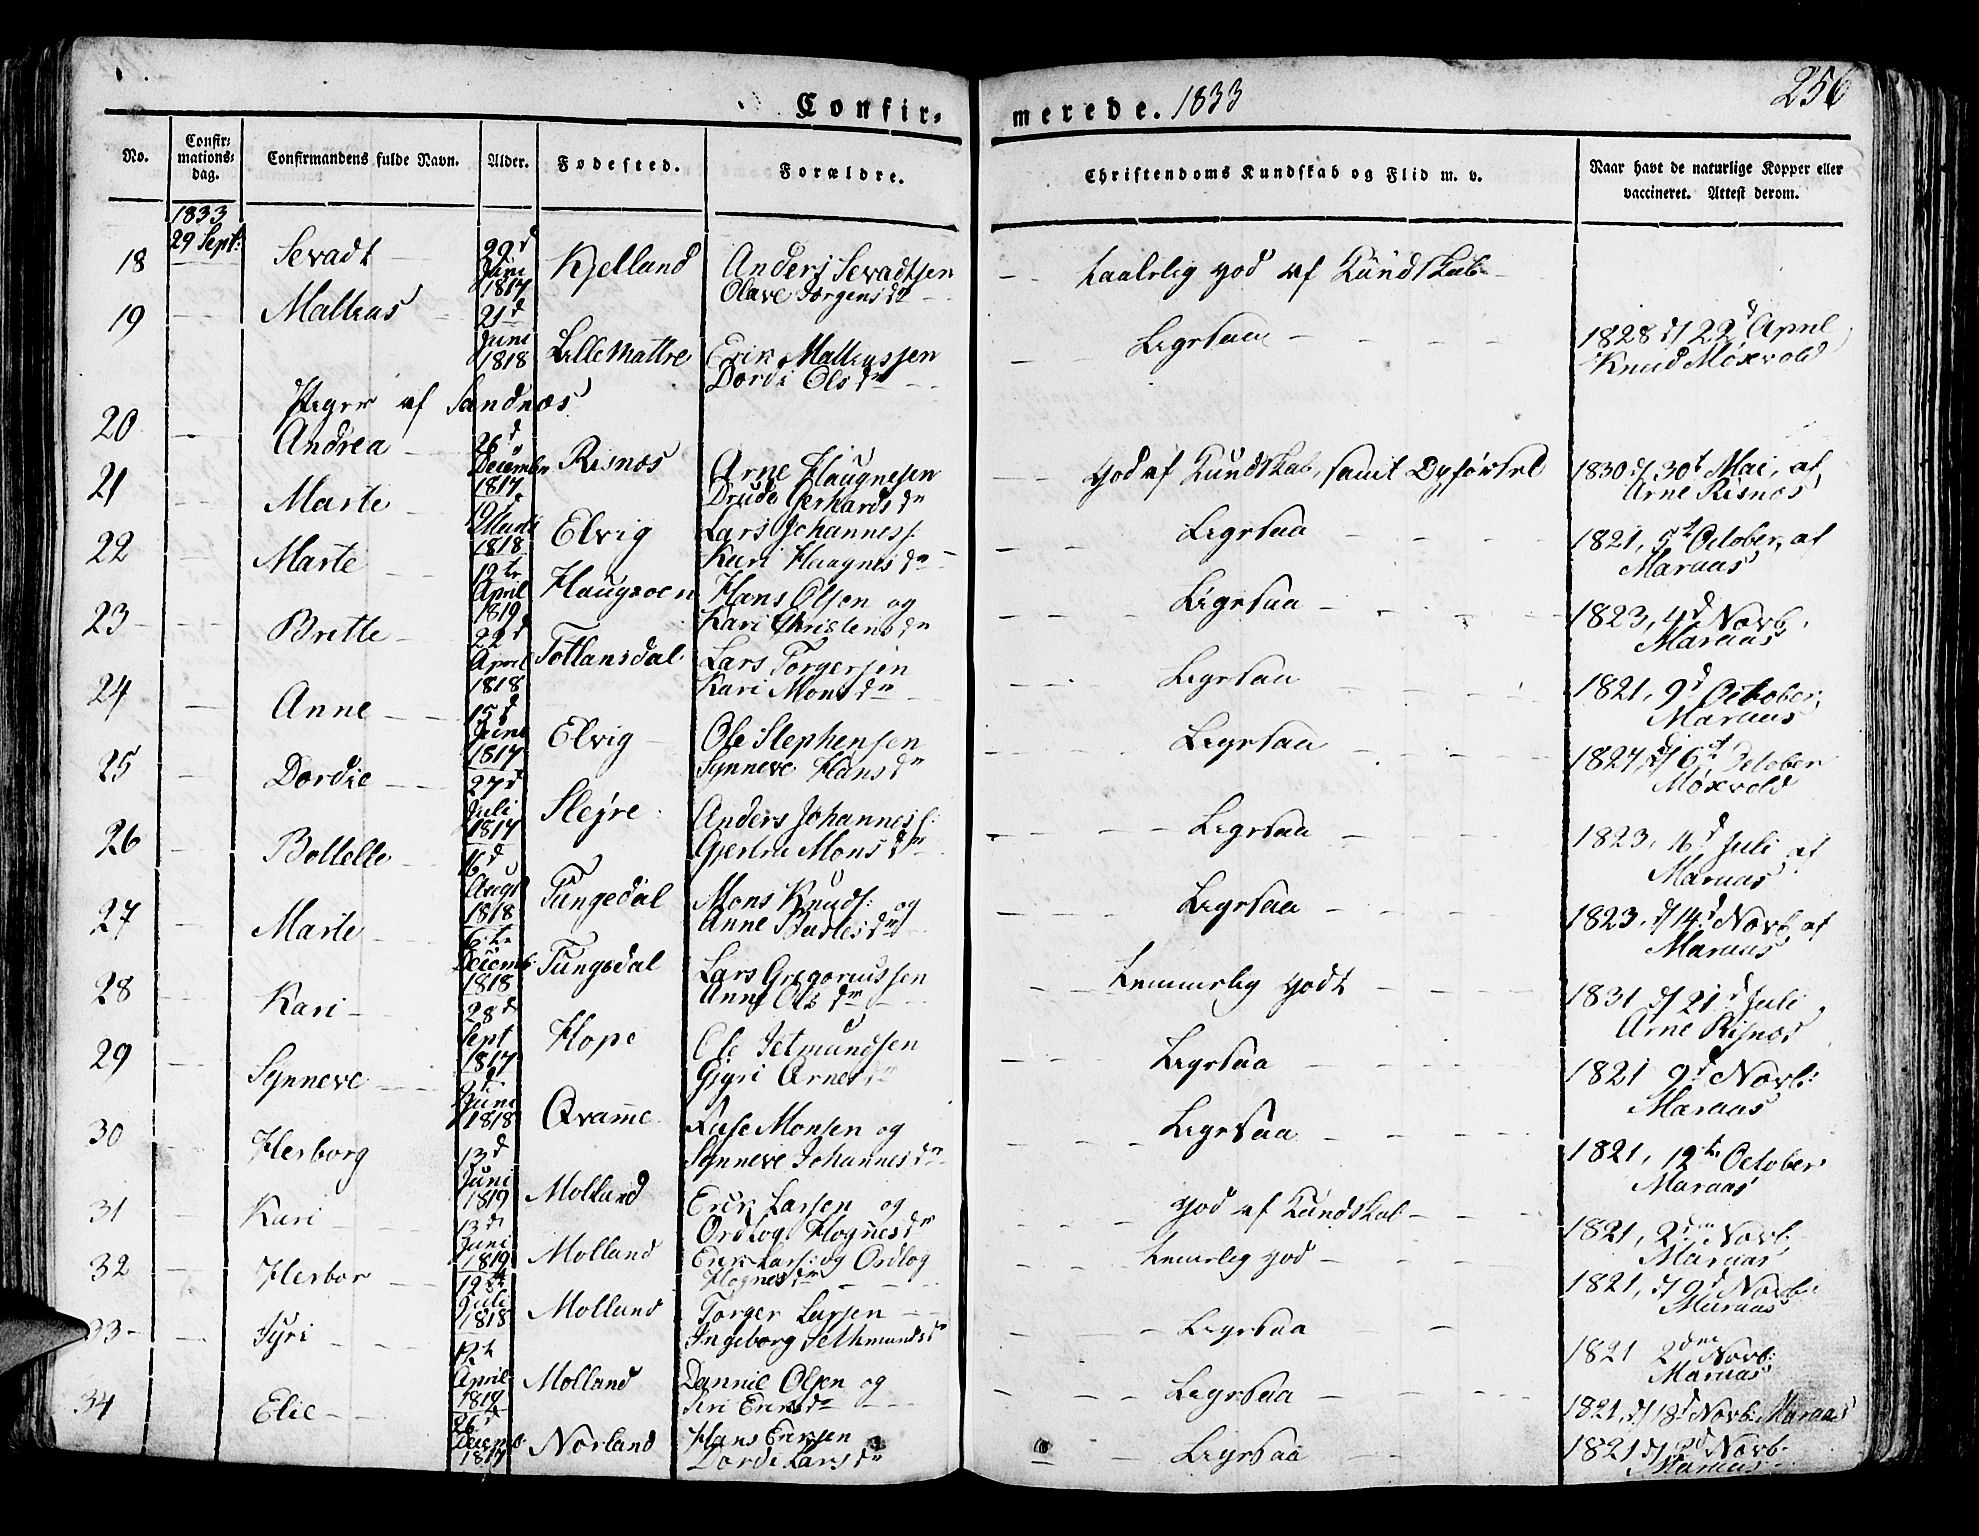 Confir- merede. 1833 256
No. Confir- mations- dag. Confirmandens fulde Navn. Alder. Fødested. Forældre. Christendoms Kundskab og Flid m. v. Naar havt de naturlige Kopper eller vaccineret. Attest derom.
1833
18 29 Sept: Sevadt Juni 1817 Kjelland Anders Sevadtsen
Olave Jørgensdr
taalelig god af Kundskab
19 Mathias 21d Juni 1818 Lille Mattre Erik Mathiassen
Dordi Olsdr
Ligesaa 1828 d/22d April
Knud Møxvold
Piger af Sandnæs
20 Andrea 26d December 1817 Risnæs Arne Haugnesen
Drude Gerhardsdr
god af Kundskab, samt Opførsel 1830 d/30t Mai, af
Arne Risnæs
21 Marte 1818 Elvig Lars Johanness:
Kari Haagnesdr
Ligesaa 1821, October, af
Maraas
22 Marte 12te April 1819 Haugsoen Hans Olsen og
Kari Christensdr
Ligesaa 1823, 4d Novb.
Maraas
23 Britte 22d April 1818 Totlansdal Lars Torgersen
Kari Monsdr
Ligesaa 1821, 9d October,
Maraas
24 Anne 15d Juni 1817 Elvig Ole Stephensen
Synneve Hansdr
Ligesaa 1827, d/6t October
Møxvold
25 Dordie 27d Juli 1817 Slejre Anders Johanness:
Gjertru Monsdr
Ligesaa 1823, 16d Juli af
Maraas
26 Boletle 16d Augt 1818 Tungedal Mons Knuds: og
Anne
Ligesaa 1823, d/14d Novb. af
Maraas
27 Marte 6te Decemb: 1818 Tungedal Lars Gregoriussen
Anne Olsdr
temmelig godt 1831 d/21d Juli
Arne Risnæs
28 Kari 28d Sept 1817 Hope Ole Setmundsen
Gyri Arnesdr
Ligesaa 1821 9d Novb:
Maraas
29 Synneve Juni 1818 Qvamme Monsen og
Synneve Johannesdr
Ligesaa 1821, 12te October
Maraas
30 Herborg 13d Juni 1819 Molland Erik Larsen og
Ordlog Hognesdr
god af Kundskab 1821, 2den Novb:
Maraas
31 Kari 13d Juni 1819 Molland Erik Lars: og Ordlog
Hognesdr
temmelig god 1821, d/9d Novb:
Maraas
32 Herbor 12te Juli 1818 Molland Torger Larsen
Ingeborg Sethmundsdr
Ligesaa 1821 2den Novb:
Maraas
33 Gyri 12te April 1817 Molland Dannil Olsen og
Siri Eriksdr
Ligesaa 1821, d/18d Novb: Maraas
34 Elie 26d Decemb: 1817 Norland Hans Eriksen
Dorde Larsdr
Ligesaa 1821 Novb:
Maraas